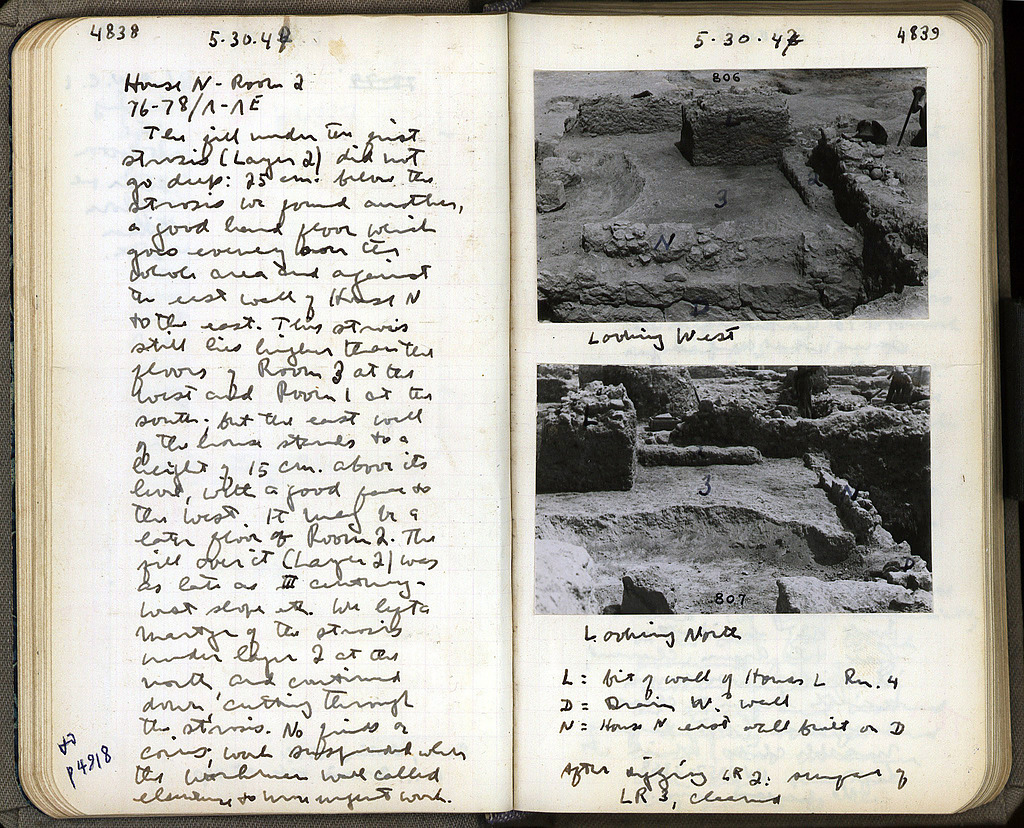 4838
5·30·47
House N - Room 2
76-78/Λ-ΛE
The fill under the first
strosis (Layer 2) did not
go deep: 25 cm. below the
strosis we found another,
a good hard floor which
goes evenly over the
whole area and against
the east wall of House N
to the east. This strosis
still lies higher than the
floors of Room 3 at the
west and Room 1 at the
south. but the east wall
of the house stands to a
height of 15 cm. above its
level, with a good face to
the west. It may be a
later floor of Room 2. The
fill over it (Layer 2) was
as late as III century-
west slope etc. We left a
martyr of the strosis
under layer 2 at the
north, and continued
down, cutting through
the strosis. No finds or
coins; work suspended when
the workmen were called
elsewhere to more urgent work.
to
p4918
4839
5·30·47
806
3
N
D
Looking West
L
3
N
D
807
Looking North
L = bit of wall of House L Rm. 4
D = Drain W. wall
N = House N east wall built on D
After digging LR 2: surface of
LR 3, cleaned